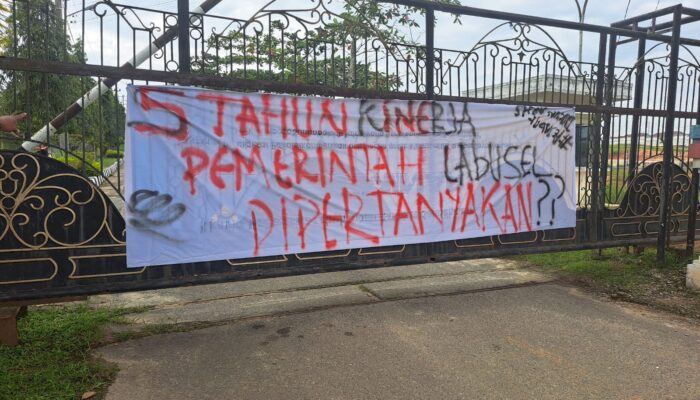 5 TAHUN KINERJA
PEMERINTAH LABUSEL
DIPERTANYAKAN??